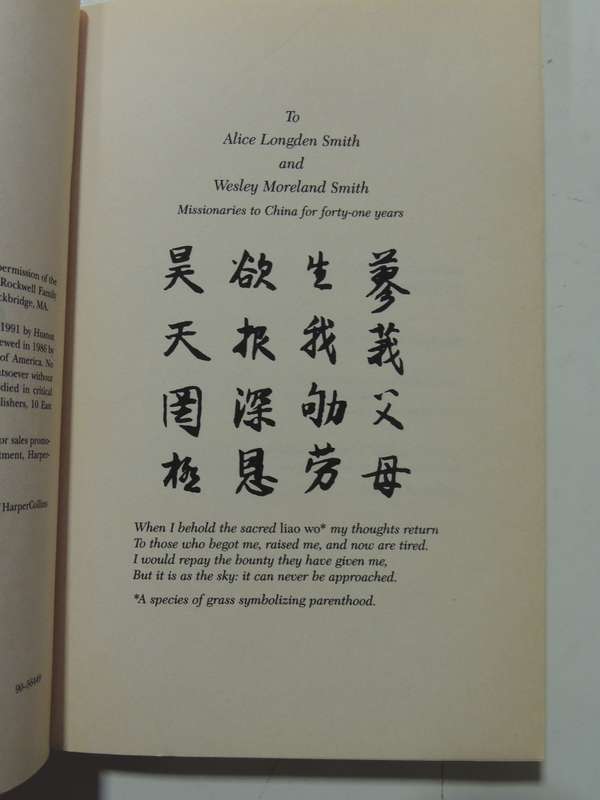 permission of the
Rockwell Family
ckbridge, MA.
1991 by Huston
ewed in 1986 by
of America. No
tsoever without
died in critical
lishers, 10 East
or sales promo-
tment, Harper-
HarperCollins
To
Alice Longden Smith
and
Wesley Moreland Smith
Missionaries to China for forty-one years
蓼莪父母
生我劬劳
欲报深恩
昊天罔極
When I behold the sacred liao wo* my thoughts return
To those who begot me, raised me, and now are tired.
I would repay the bounty they have given me,
But it is as the sky: it can never be approached.
*A species of grass symbolizing parenthood.